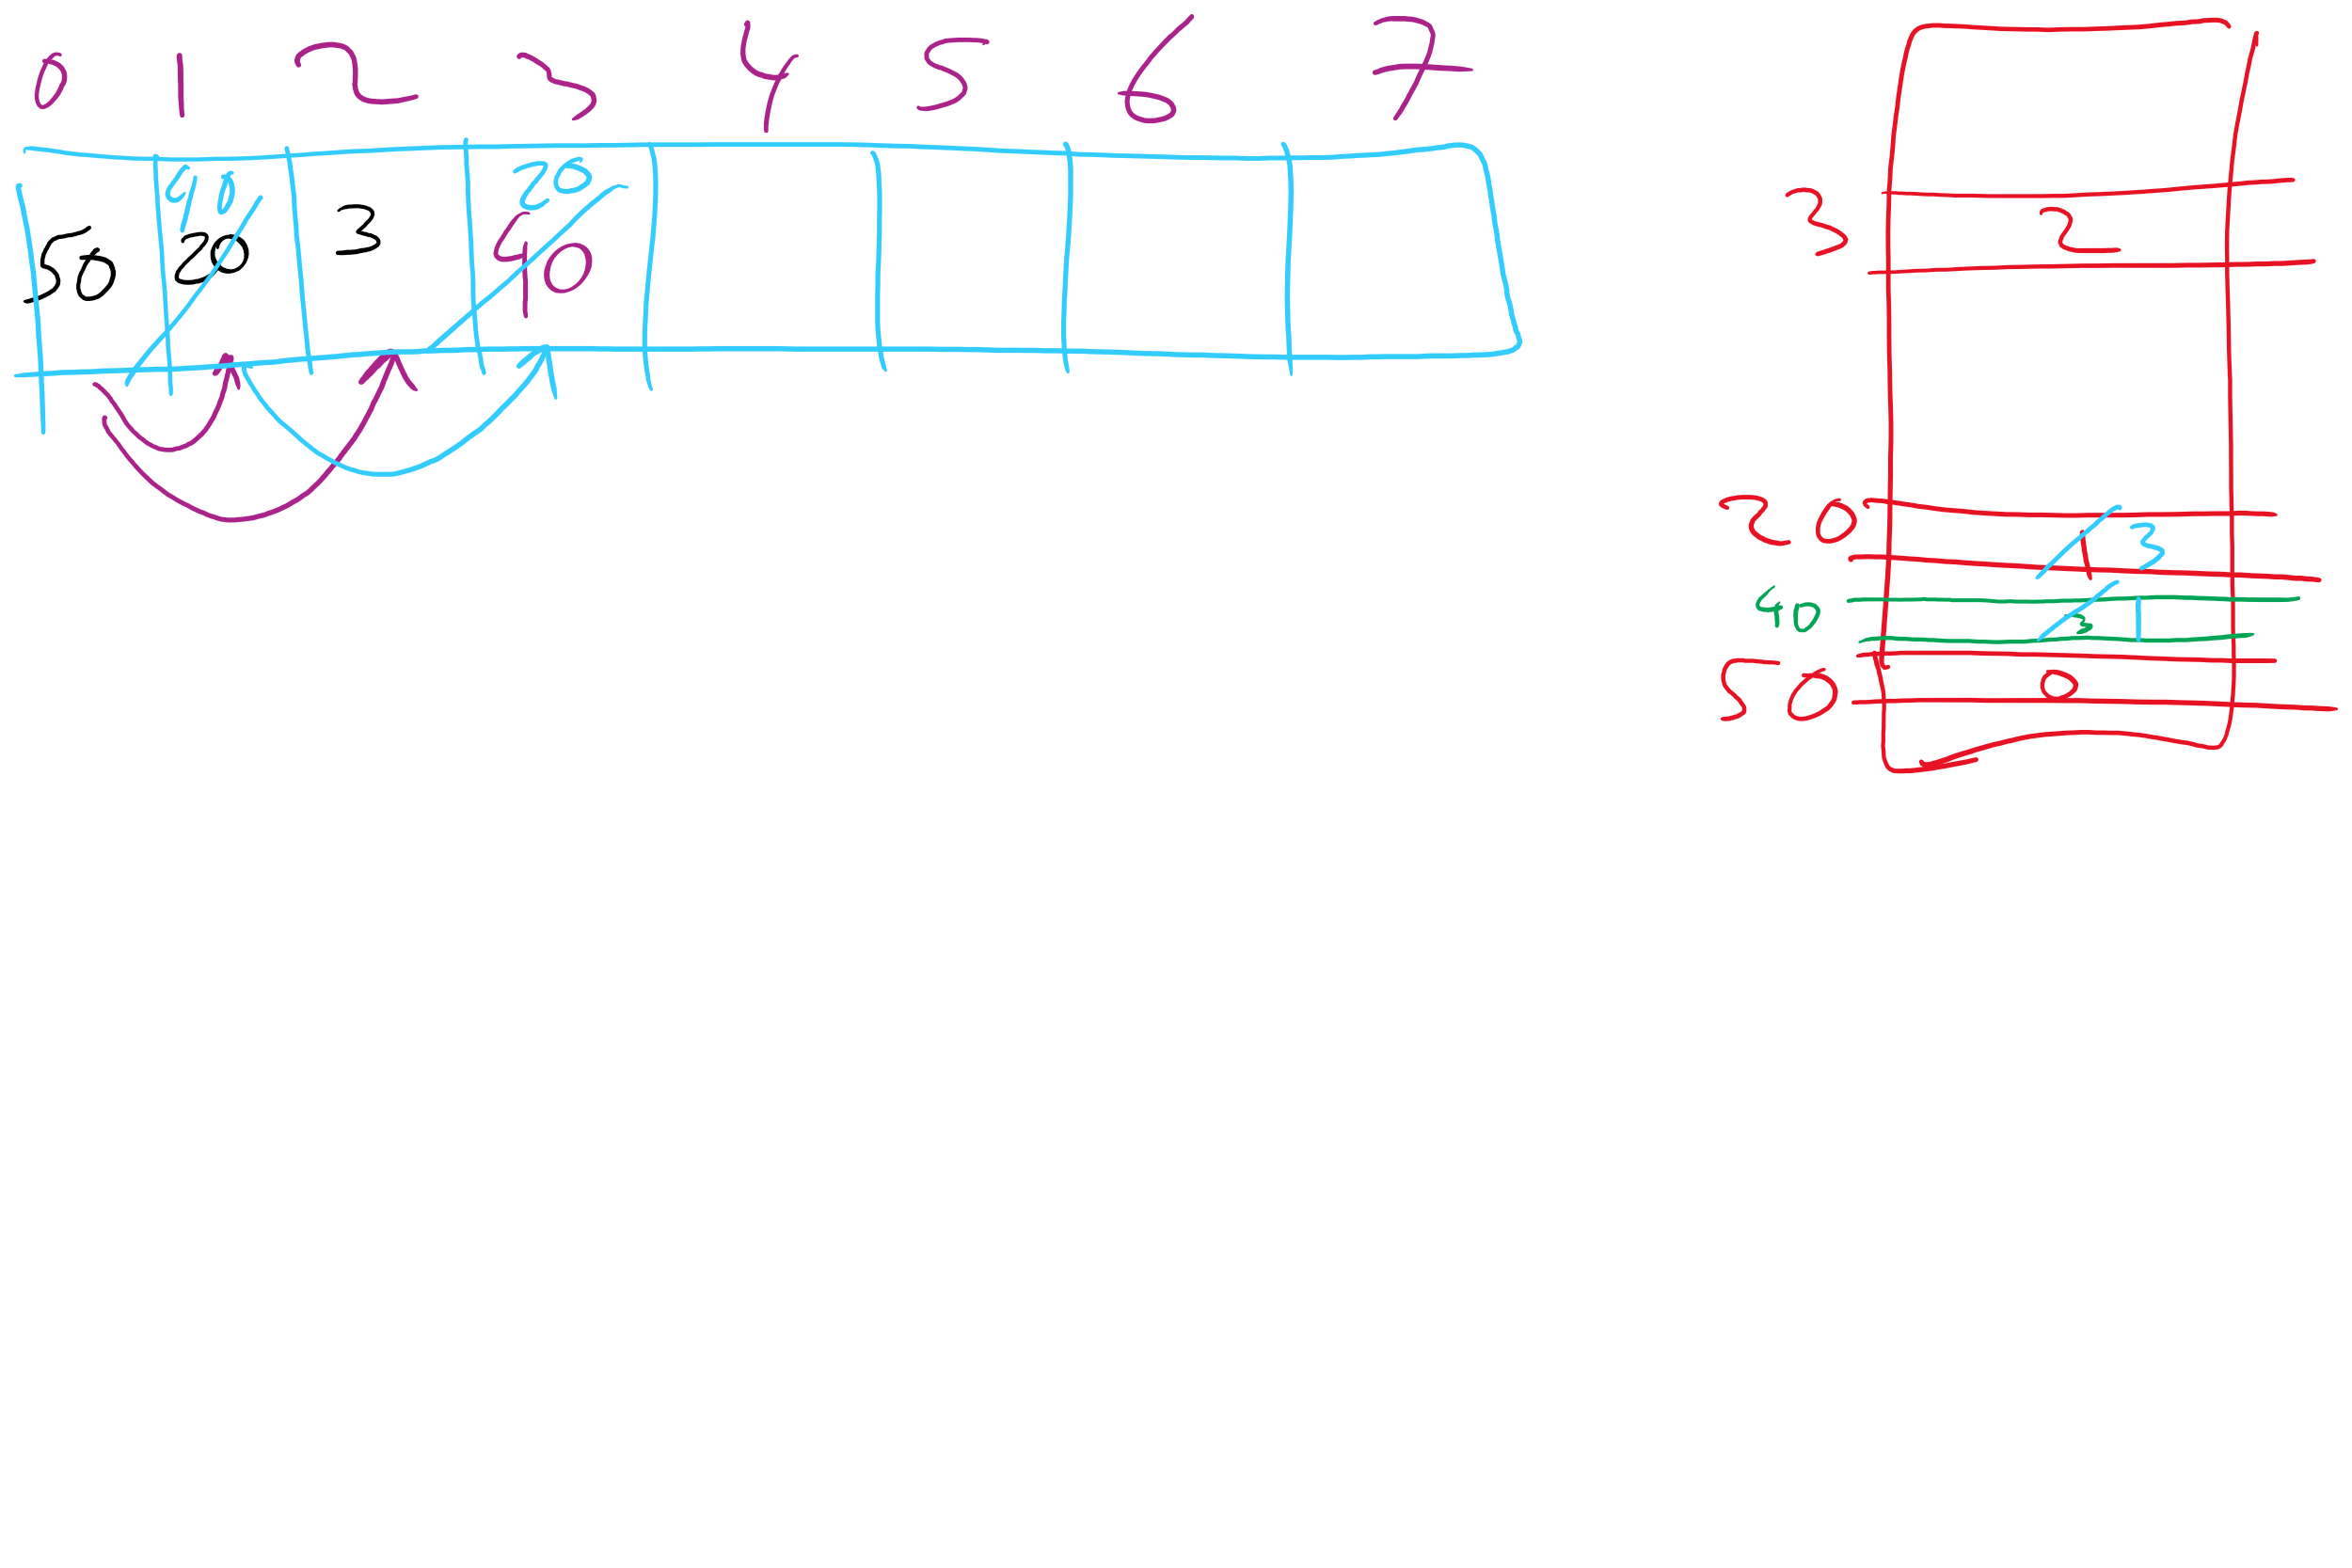 0 1 2 3 4 5 6 7
40 20
50 20 3 40
3 2
20 1 3
40 3 1
50 0